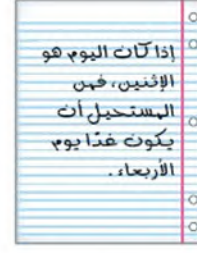 إذا كان اليوم هو
الإثنين، فمن
المستحيل أن
يكون غدًا يوم
الأربعاء.